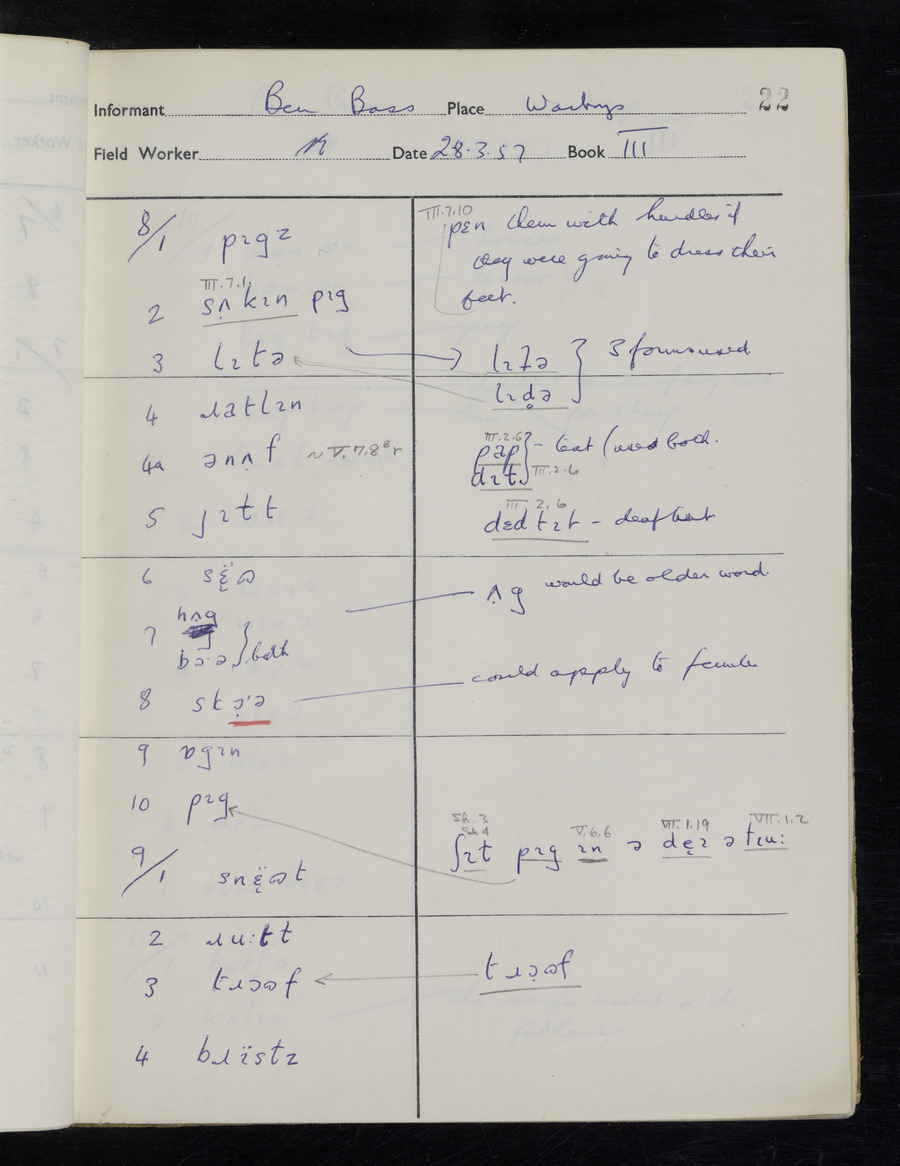 22
Informant Ben Bass Place Warboys
Field Worker Date 28.3.57 Book III
8/1 pɪgz
III.7.1
2 sʌ̣kɪn pɪg
3 lɪtə
4 ɹatlɪn
4a ənʌf ~ V.7.8
5 ɹɪtt
6
7 hʌ̣g
bɔ:ə } both
8 stɔ̣'ə
9 ɒgɪn
10 pɪg
9/1
2 ɹu:tt
3 tɹɔɷf
4 bɹïstz
III.7.10
pɛn them with hurdles if
they were going to dress their
feet.
lɪʔə } 3 forms used
lɪd̥ə
III.2.6
pap } – teat (used both.
dɪt III.2.6
III.2.6
dɛd tɪt – deaf teat
ʌ̣g would be older word
could apply to female
Sh.3
Sh4 V.6.6 VII.1.19 VII.1.2
ʃɪt pɪg ɪn ə dẹɪ ə tɪu:
tɹɔ̣ɷf